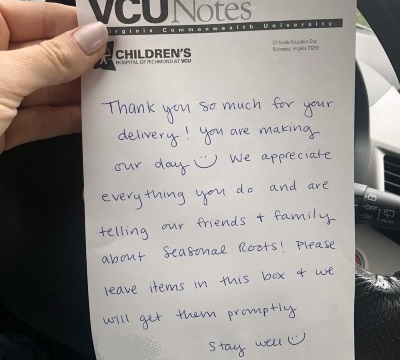 VCU Notes
Virginia Commonwealth University
CHILDREN'S
HOSPITAL OF RICHMOND AT VCU
Richmond, Virginia 23298
Thank you so much for your
delivery! You are making
our day We appreciate
everything you do and are
telling our friends + family
about Seasonal Roots! Please
leave items in this box + we
will get them promptly
Stay well